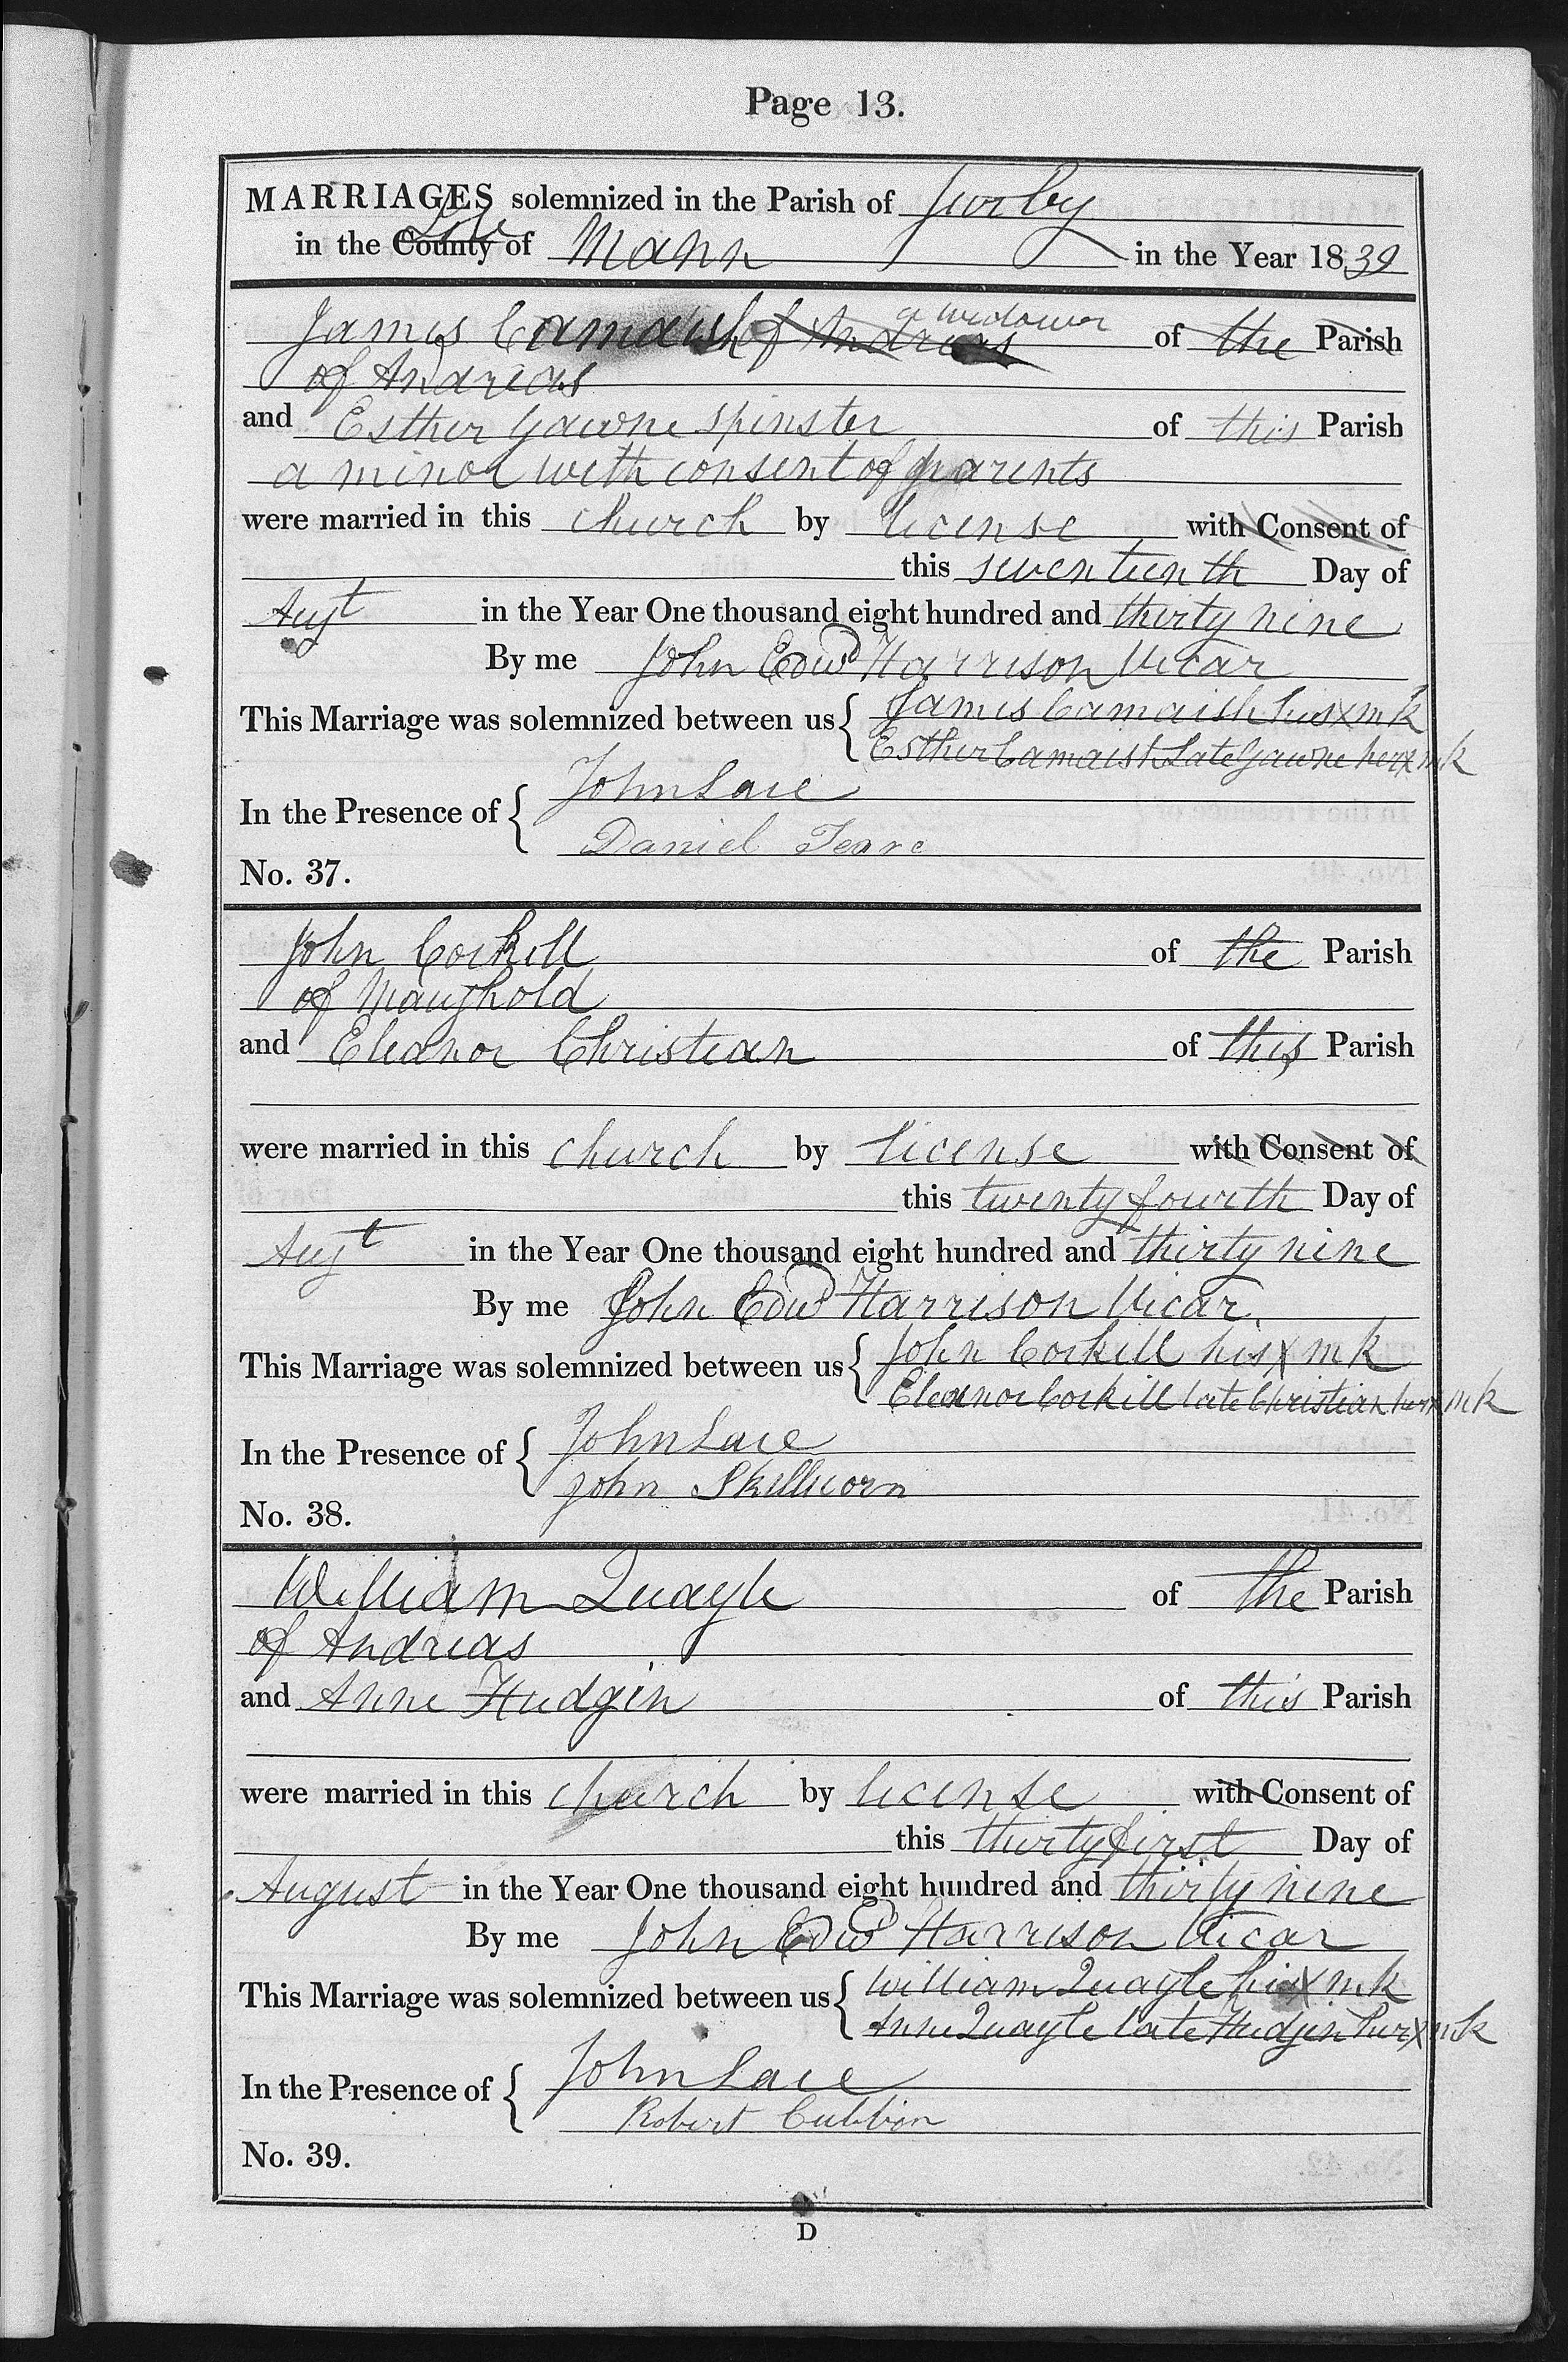 Page 13.
MARRIAGES solemnized in the Parish of Jurby
in the County Isle of Mann in the Year 1839
James Camaish of Andreas a widower of the Parish
of Andreas
and Esther Gawne spinster of this Parish
a minor with consent of parents
were married in this church by license with Consent of
this seventeenth Day of
Augt in the Year One thousand eight hundred and thirty nine
By me John Edwd Harrison Vicar
This Marriage was solemnized between us { James Camaish his x mk
Esther Camaish Late Gawne her x mk
In the Presence of { John Lace
Daniel Teare
No. 37.
John Corkill of the Parish
of Maughold
and Eleanor Christian of this Parish
were married in this church by license with Consent of
this twenty fourth Day of
Augt in the Year One thousand eight hundred and thirty nine
By me John Edwd Harrison Vicar.
This Marriage was solemnized between us { John Corkill his x mk
Eleanor Corkill late Christian her x mk
In the Presence of { John Lace
John Skillicorn
No. 38.
William Quayle of the Parish
of Andreas
and Anne Hudgin of this Parish
were married in this church by license with Consent of
this thirty first Day of
August in the Year One thousand eight hundred and thirty nine
By me John Edwd Harrison Vicar
This Marriage was solemnized between us { William Quayle his x mk
Anne Quayle late Hudgin her x mk
In the Presence of { John Lace
Robert Cubbon
No. 39.
D